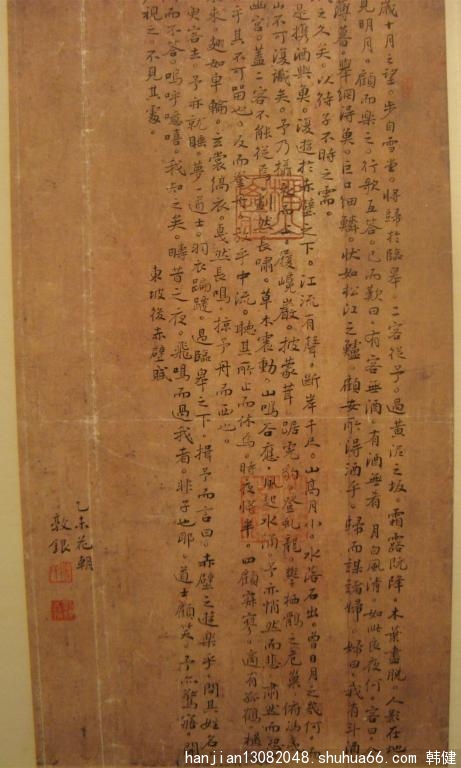 歲十月之望。步自雪堂。將歸於臨皋。二客從予。過黃泥之坂。霜露既降。木葉盡脫。人影在地
見明月。顧而樂之。行歌互答。已而歎曰。有客無酒。有酒無肴。月白風清。如此良夜何。客曰。
薄暮。舉網得魚。巨口細鱗。狀如松江之鱸。顧安所得酒乎。歸而謀諸婦。婦曰。我有斗酒
之久矣。以待子不時之需。
是攜酒與魚。復遊於赤壁之下。江流有聲。斷岸千尺。山高月小。水落石出。曾日月之幾何。而
山不可復識矣。予乃攝衣而上。履巉巖。披蒙茸。踞虎豹。登虬龍。攀栖鶻之危巢。俯馮
幽宮。蓋二客不能從焉。劃然長嘯。草木震動。山鳴谷應。風起水涌。予亦悄然而悲。肅然而恐
乎其不可留也。反而登舟。放乎中流。聽其所止而休焉。時夜將半。四顧寂寥。適有孤鶴。橫
東來。翅如車輪。玄裳縞衣。戛然長鳴。掠予舟而西也。
臾客去。予亦就睡。夢一道士。羽衣蹁躚。過臨皋之下。揖予而言曰。赤壁之遊樂乎。問其姓名
而不答。嗚呼噫嘻。我知之矣。疇昔之夜。飛鳴而過我者。非子也耶。道士顧笑。予亦驚寤。開
視之。不見其處。
東坡後赤壁賦
乙未花朝
敦銀
hanjian13082048.shuhua66.com 韩健